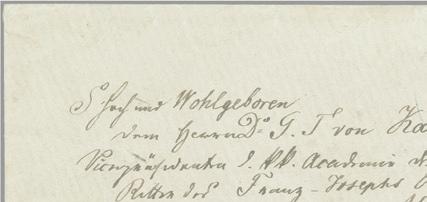 Sr Hoch und Wohlgeboren
dem Herrn Dr G. T von
Vicepräsidenten d. kk. Academie
Ritter des Franz-Josephs